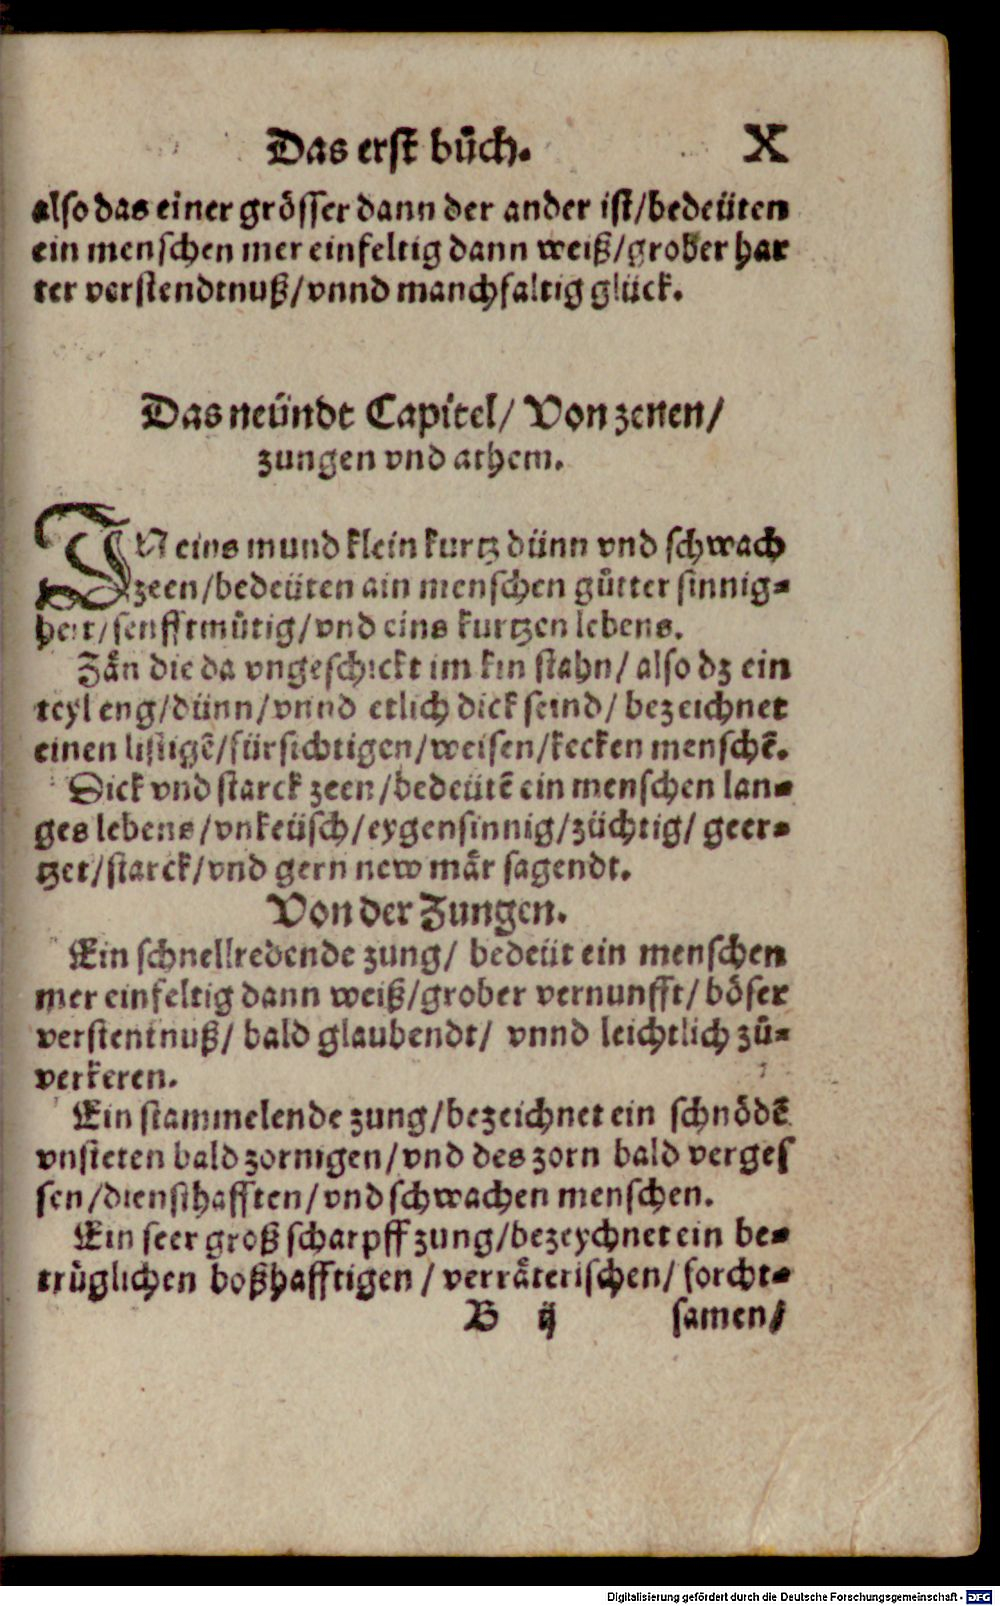 Das erst bůch. X
also das einer grösser dann der ander ist/bedeüten
ein menschen mer einfeltig dann weiß/grober har
ter verstendtnuß/vnnd manchfaltig glück.
Das neündt Capitel/ Von zenen/
zungen vnd athem.
IN eins mund klein kurtz dünn vnd schwach
zeen/bedeüten ain menschen gůtter sinnig-
heit/senfftmůtig/vnd eins kurtzen lebens.
Zän die da vngeschickt im kin stahn/ also dz ein
teyl eng/dünn/vnnd etlich dick seind/ bezeichnet
einen listigẽ/fürsichtigen/weisen/kecken menschẽ.
Dick vnd starck zeen/bedeütẽ ein menschen lan-
ges lebens/vnkeüsch/eygensinnig/züchtig/ geer-
tzet/starck/vnd gern new mär sagendt.
Von der Zungen.
Ein schnellredende zung/ bedeüt ein menschen
mer einfeltig dann weiß/grober vernunfft/ böser
verstentnuß/ bald glaubendt/ vnnd leichtlich zů-
verkeren.
Ein stammelende zung/bezeichnet ein schnödẽ
vnsteten bald zornigen/vnd des zorn bald verges
sen/diensthafften/vnd schwachen menschen.
Ein seer groß scharpff zung/bezeychnet ein be-
trüglichen boßhafftigen / verräterischen/ forcht-
B ij samen/
Digitalisierung gefördert durch die Deutsche Forschungsgemeinschaft - DFG